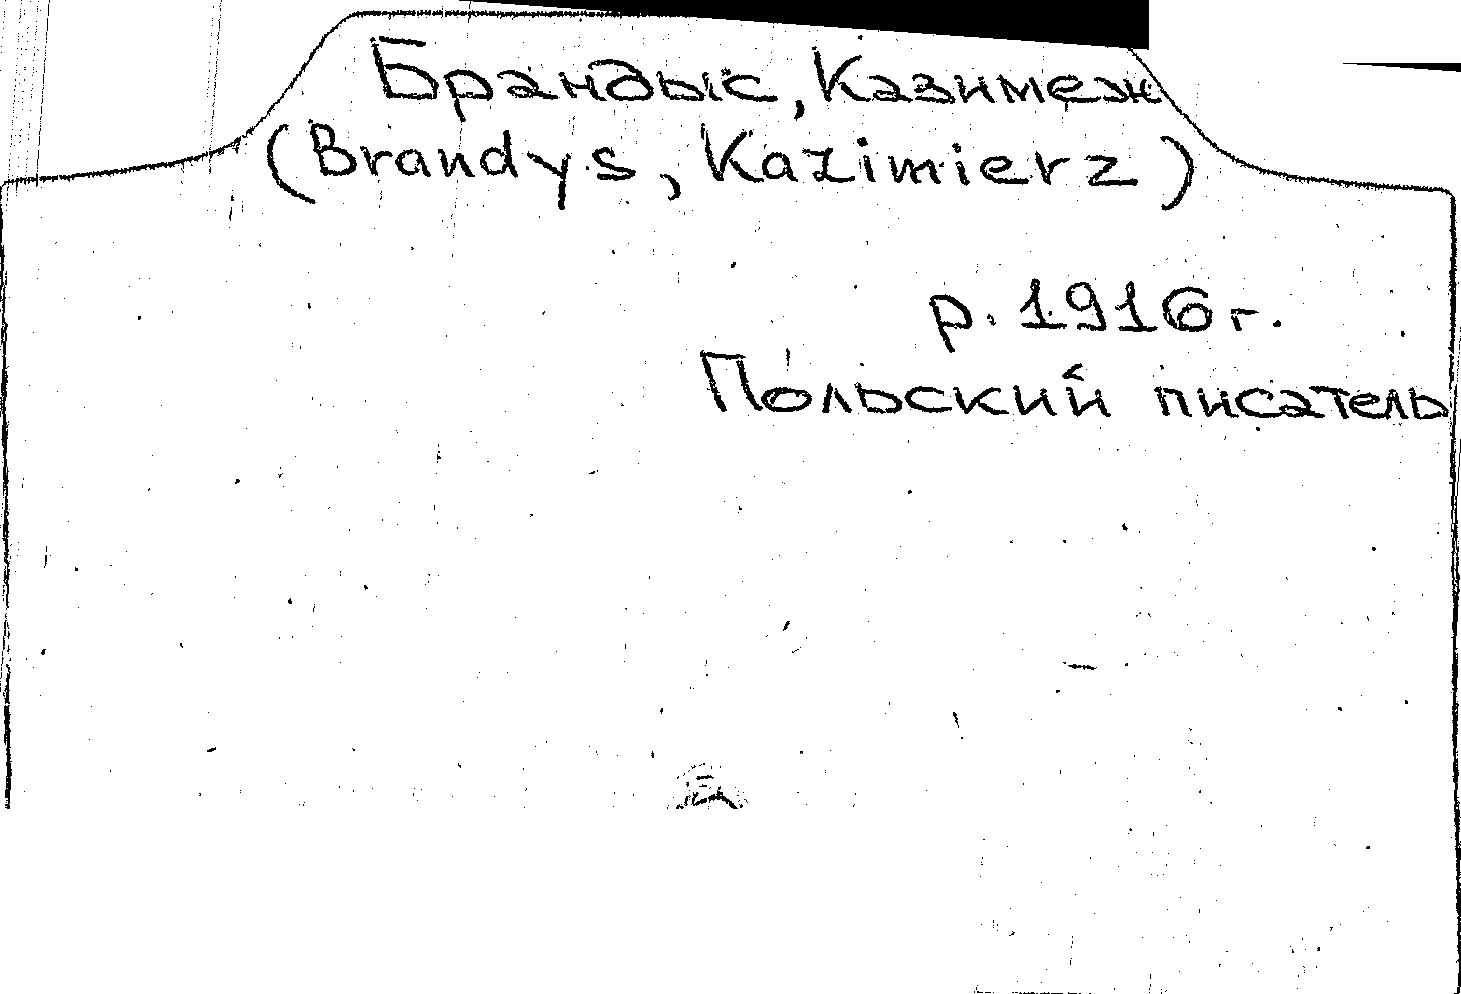 Брандыс, Казимеж
(Brandys, Kazimierz)
р. 1916 г.
Польский писатель